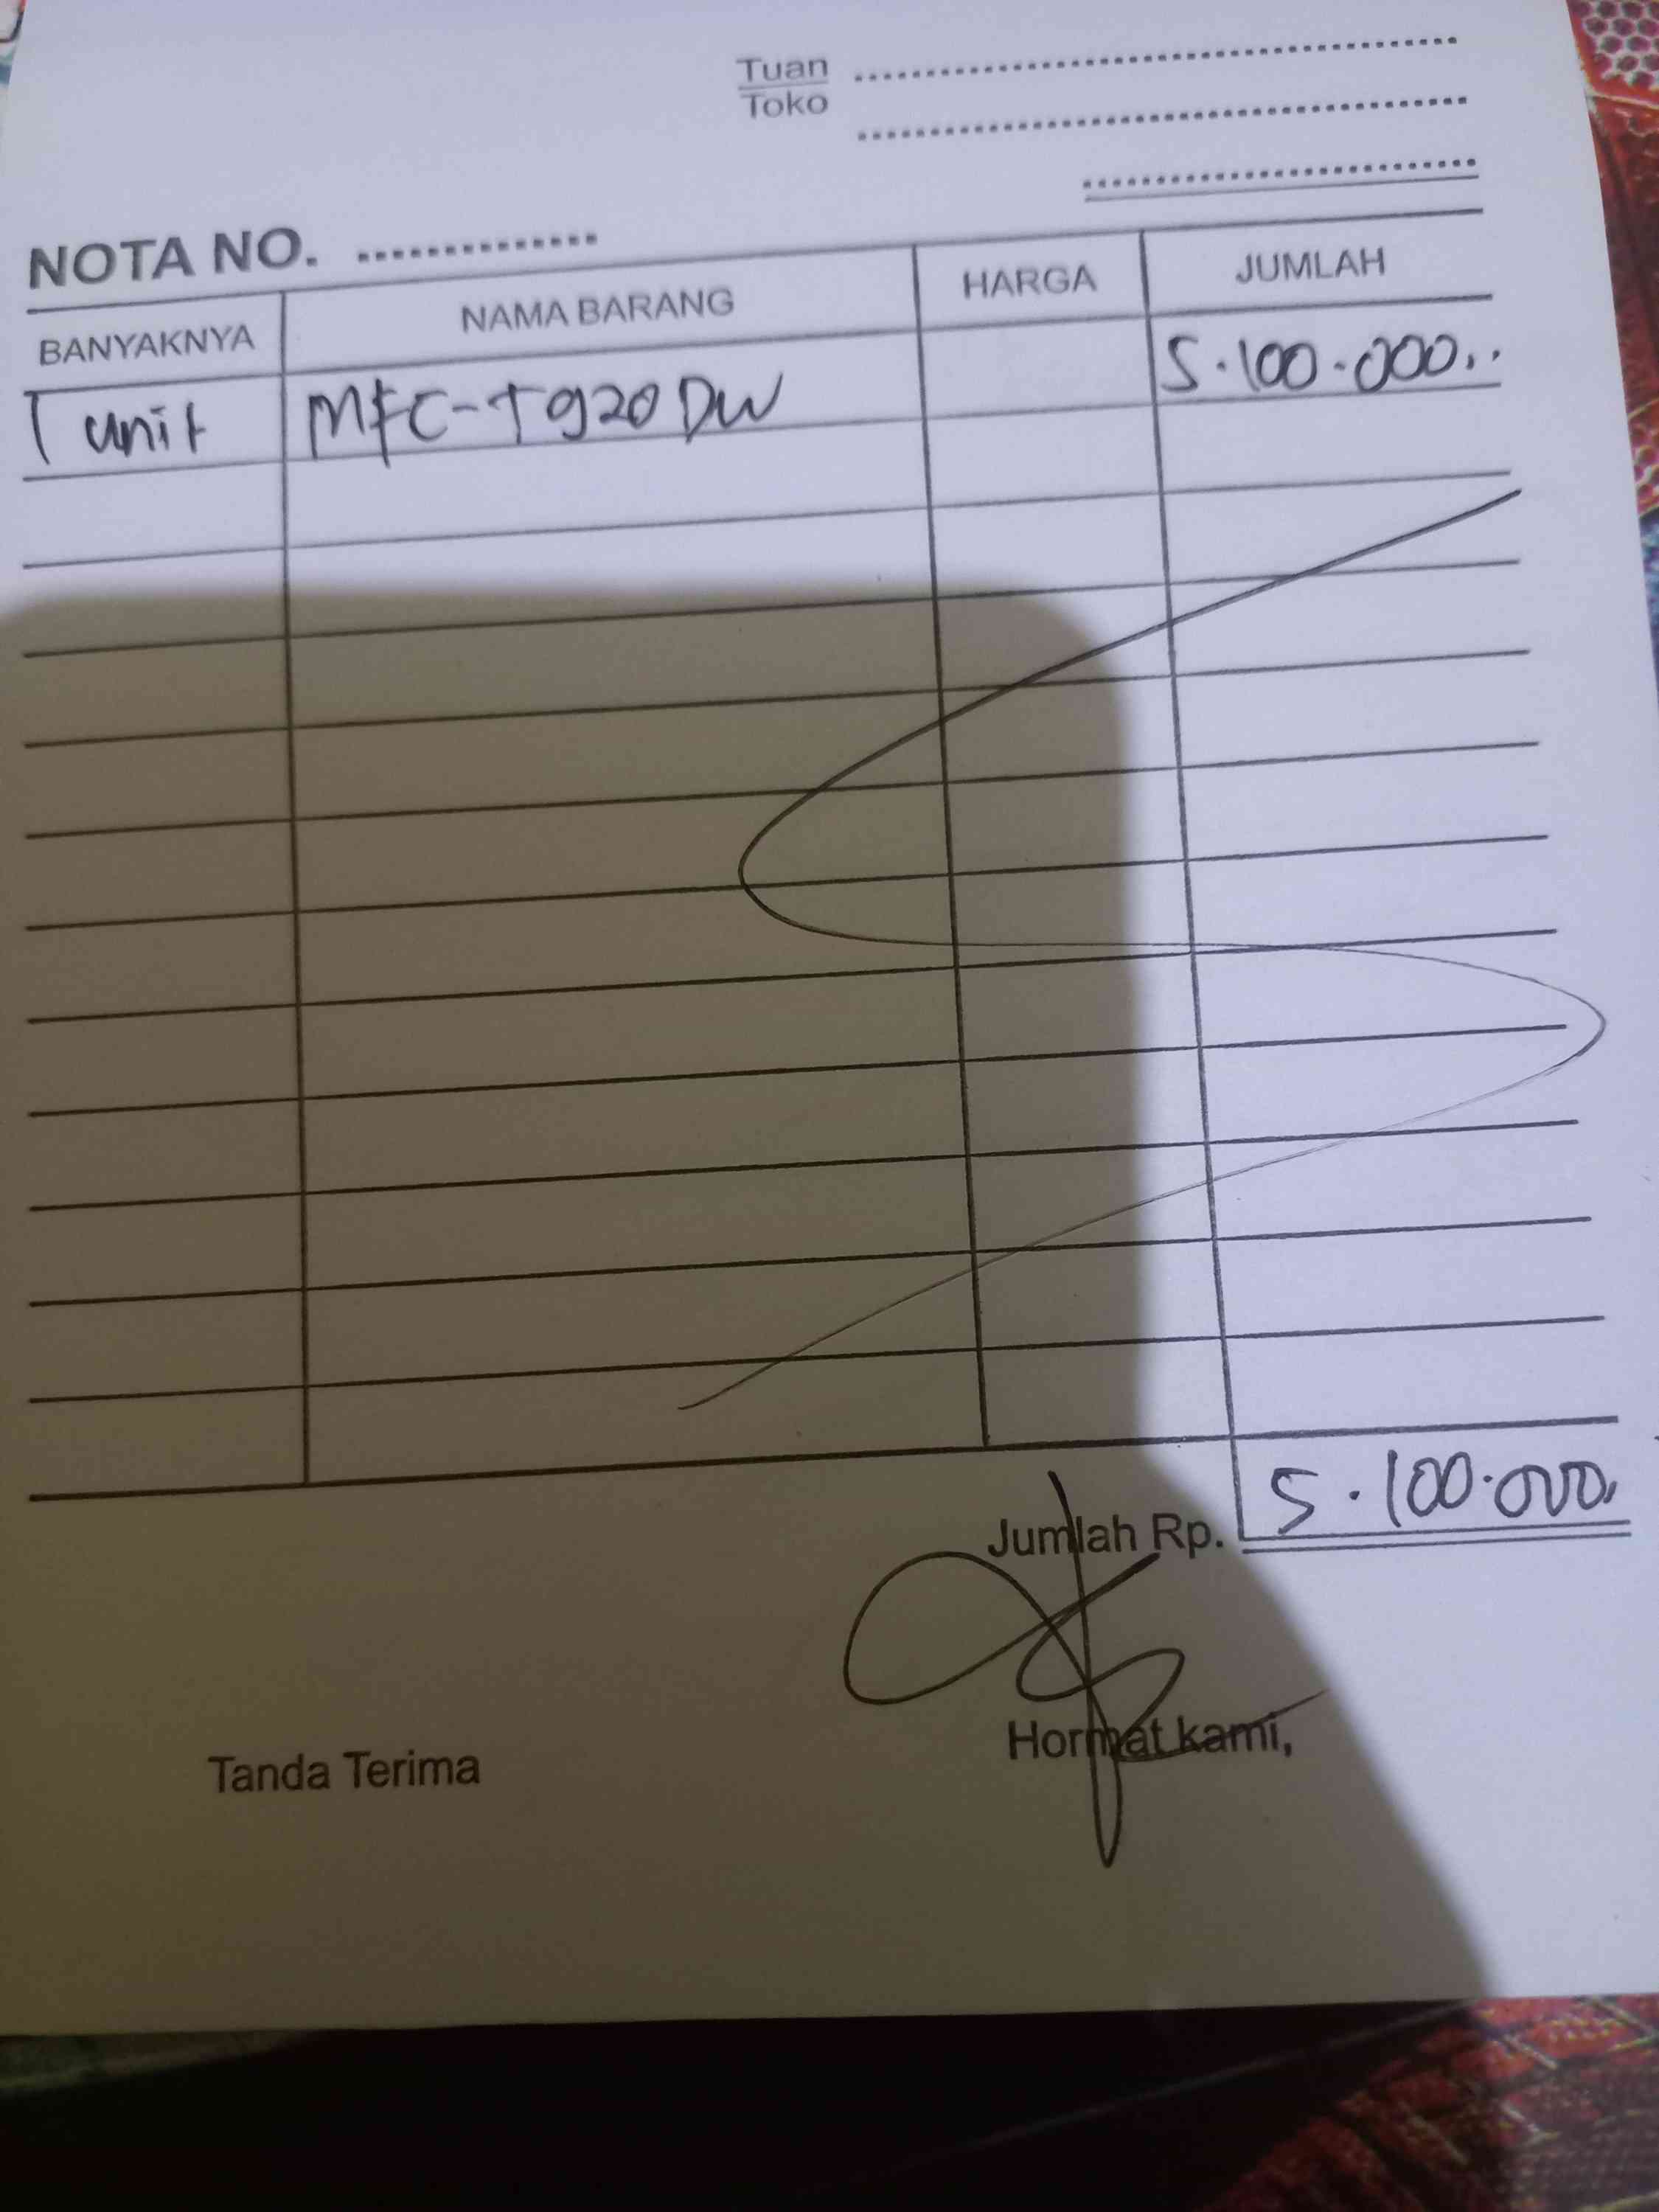 Tuan
Toko
NOTA NO.
BANYAKNYA NAMA BARANG HARGA JUMLAH
1 unit MFC-T920DW 5.100.000,-
Jumlah Rp. 5.100.000,
Tanda Terima Hormat kami,